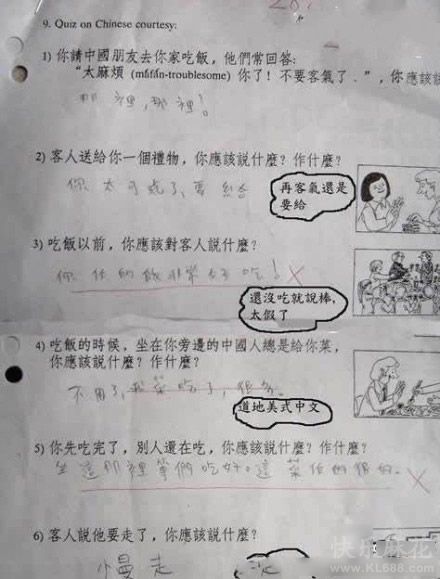 9. Quiz on Chinese courtesy:
1) 你請中國朋友去你家吃飯，他們常回答:
“太麻煩 (máfán-troublesome) 你了！不要客氣了．”, 你應該
那裡，那裡！
2) 客人送給你一個禮物，你應該說什麼？作什麼？
你太可
再客氣還是
要給
3) 吃飯以前，你應該對客人說什麼？
你 的飯非常好吃！
還沒吃就說棒，
太假了
4) 吃飯的時候，坐在你旁邊的中國人總是給你菜，
你應該說什麼？作什麼？
不用了，
道地美式中文
5) 你先吃完了，別人還在吃，你應該說什麼？作什麼？
坐這那裡等們吃好。這菜
6) 客人說他要走了，你應該說什麼？
慢走
快乐麻花
www.KL688.com